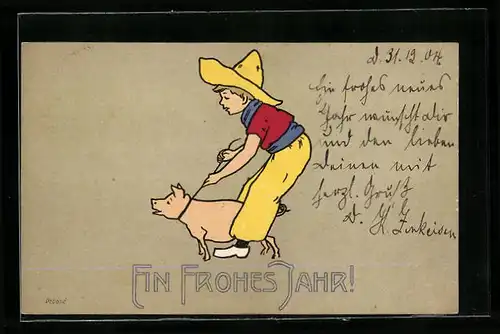 d. 31.12.04
Ein frohes neues
Jahr wünscht dir
und den lieben
Deinen mit
herzl. Gruß
d. K.
EIN FROHES JAHR!